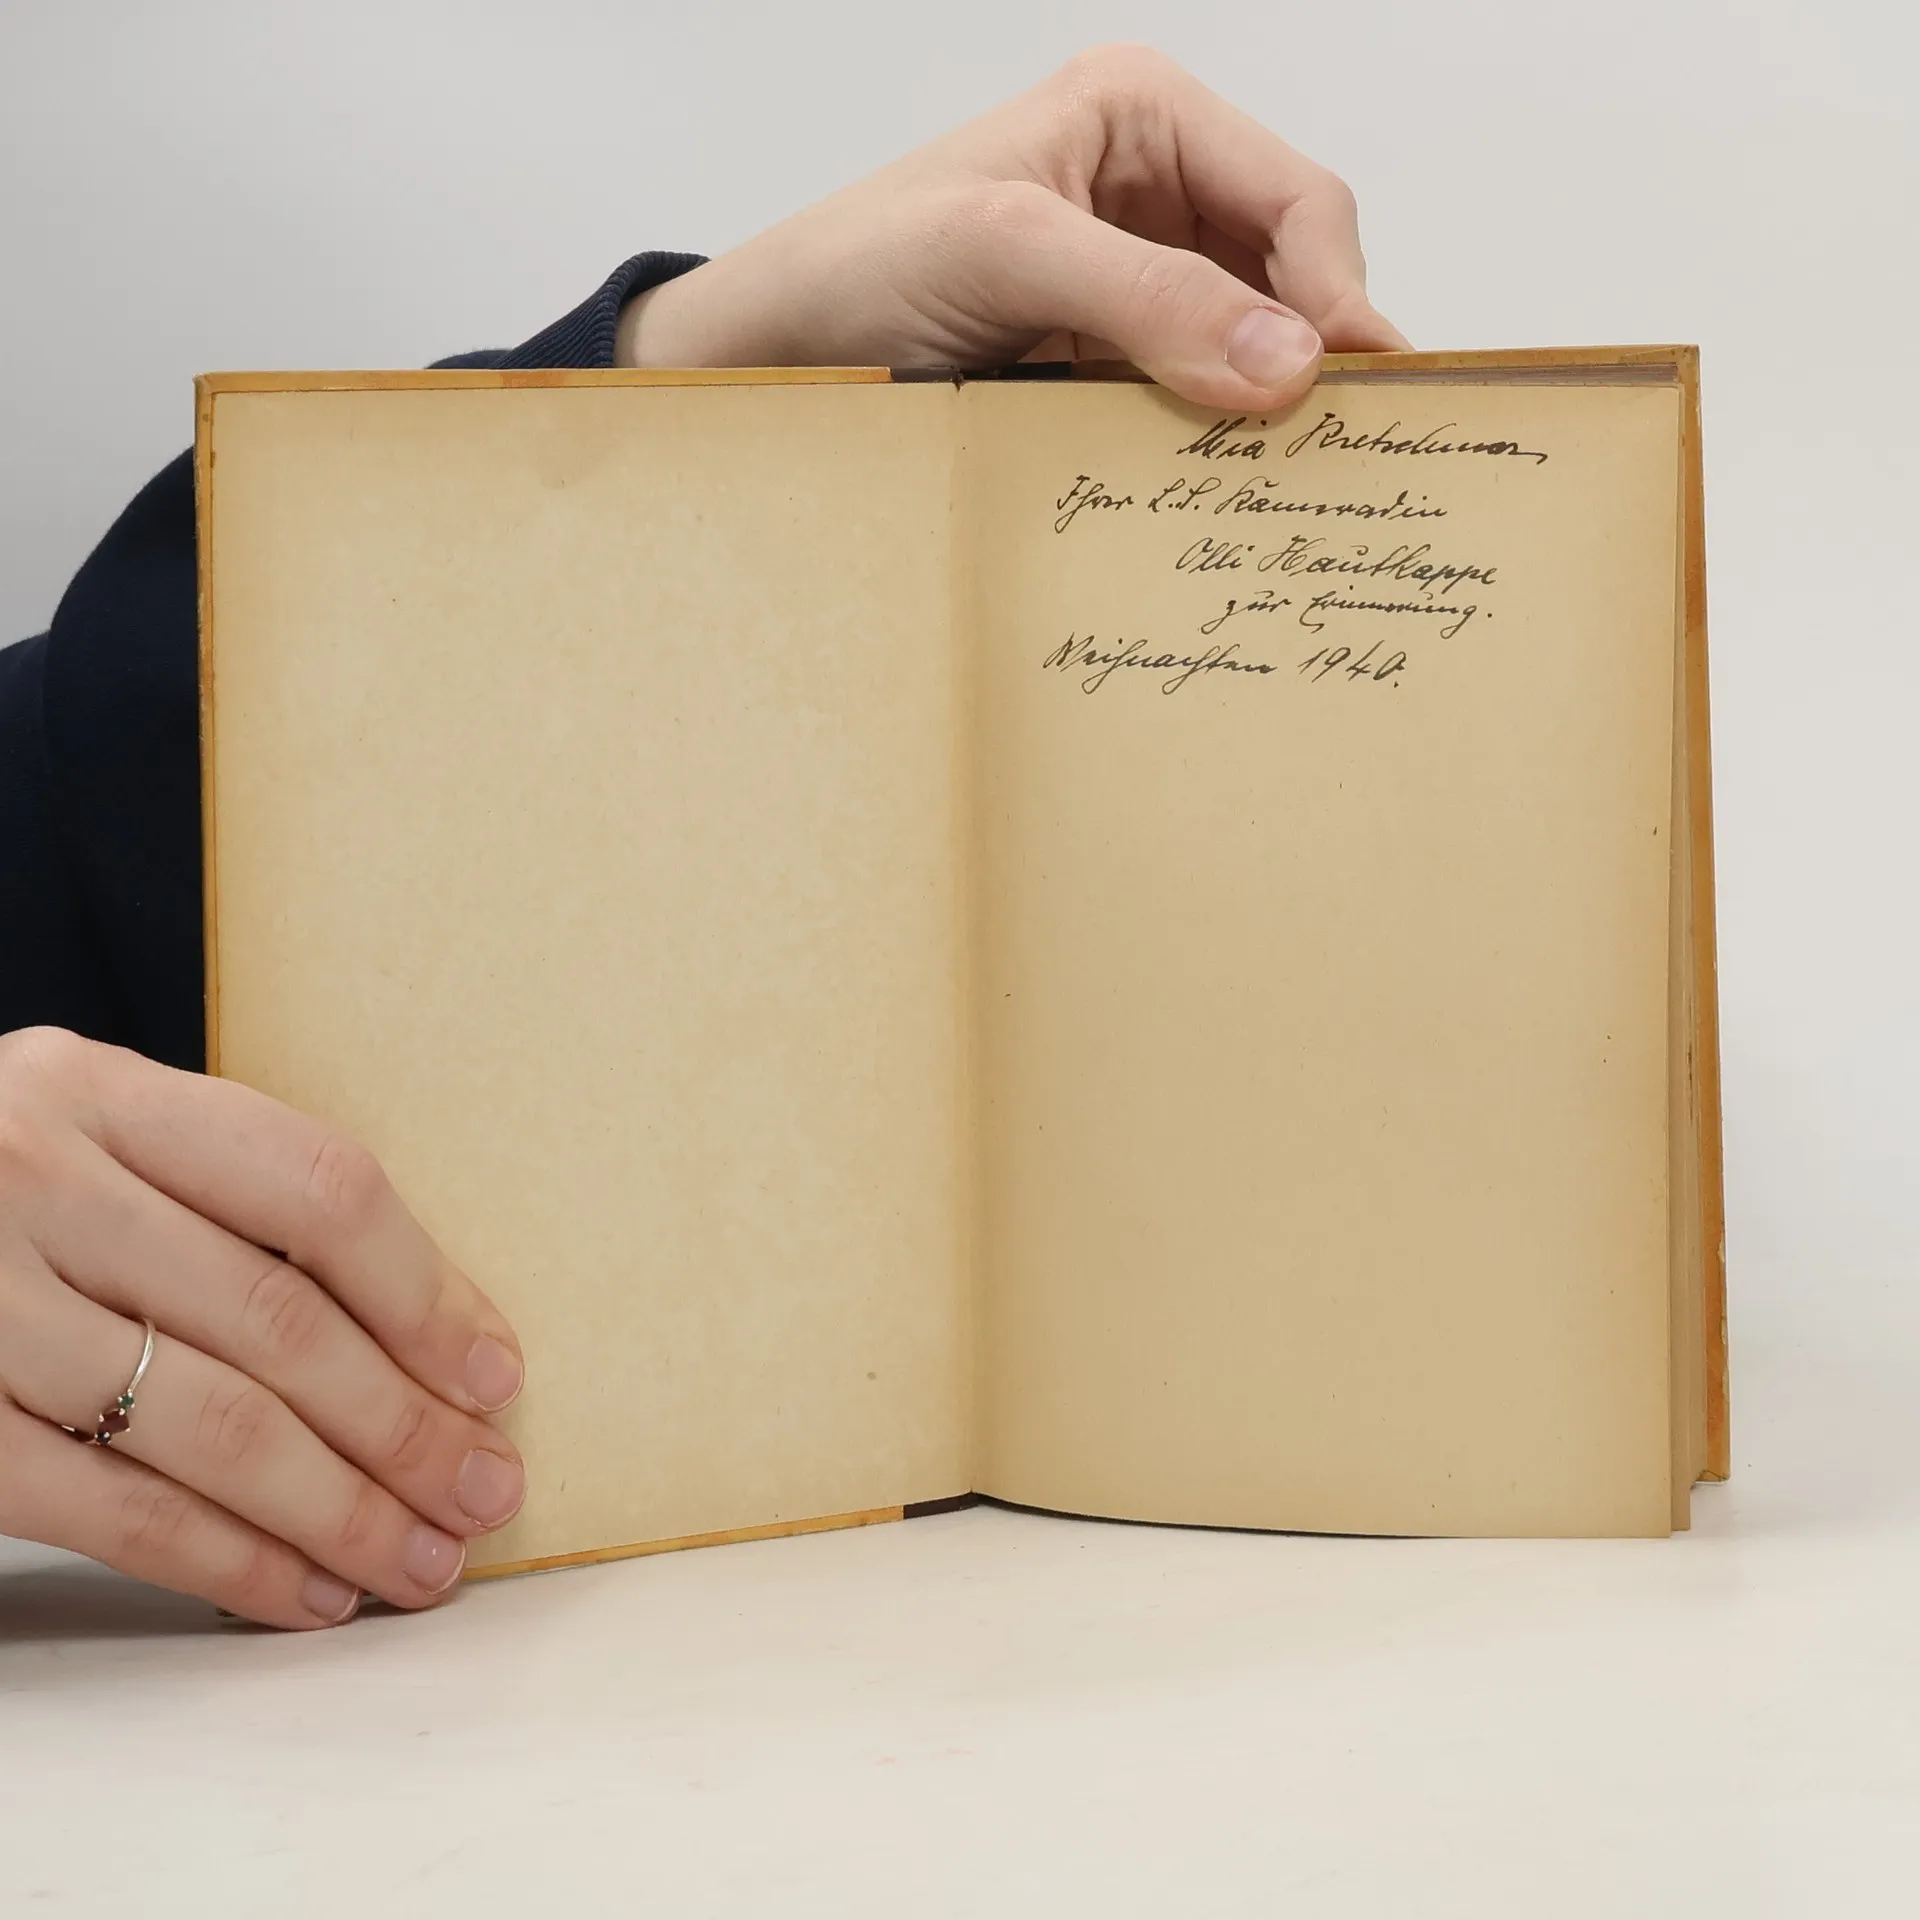 Mia Kretschmar
Ihrer L.S. Kameradin
Olli Hautkappe
zur Erinnerung.
Weihnachten 1940.